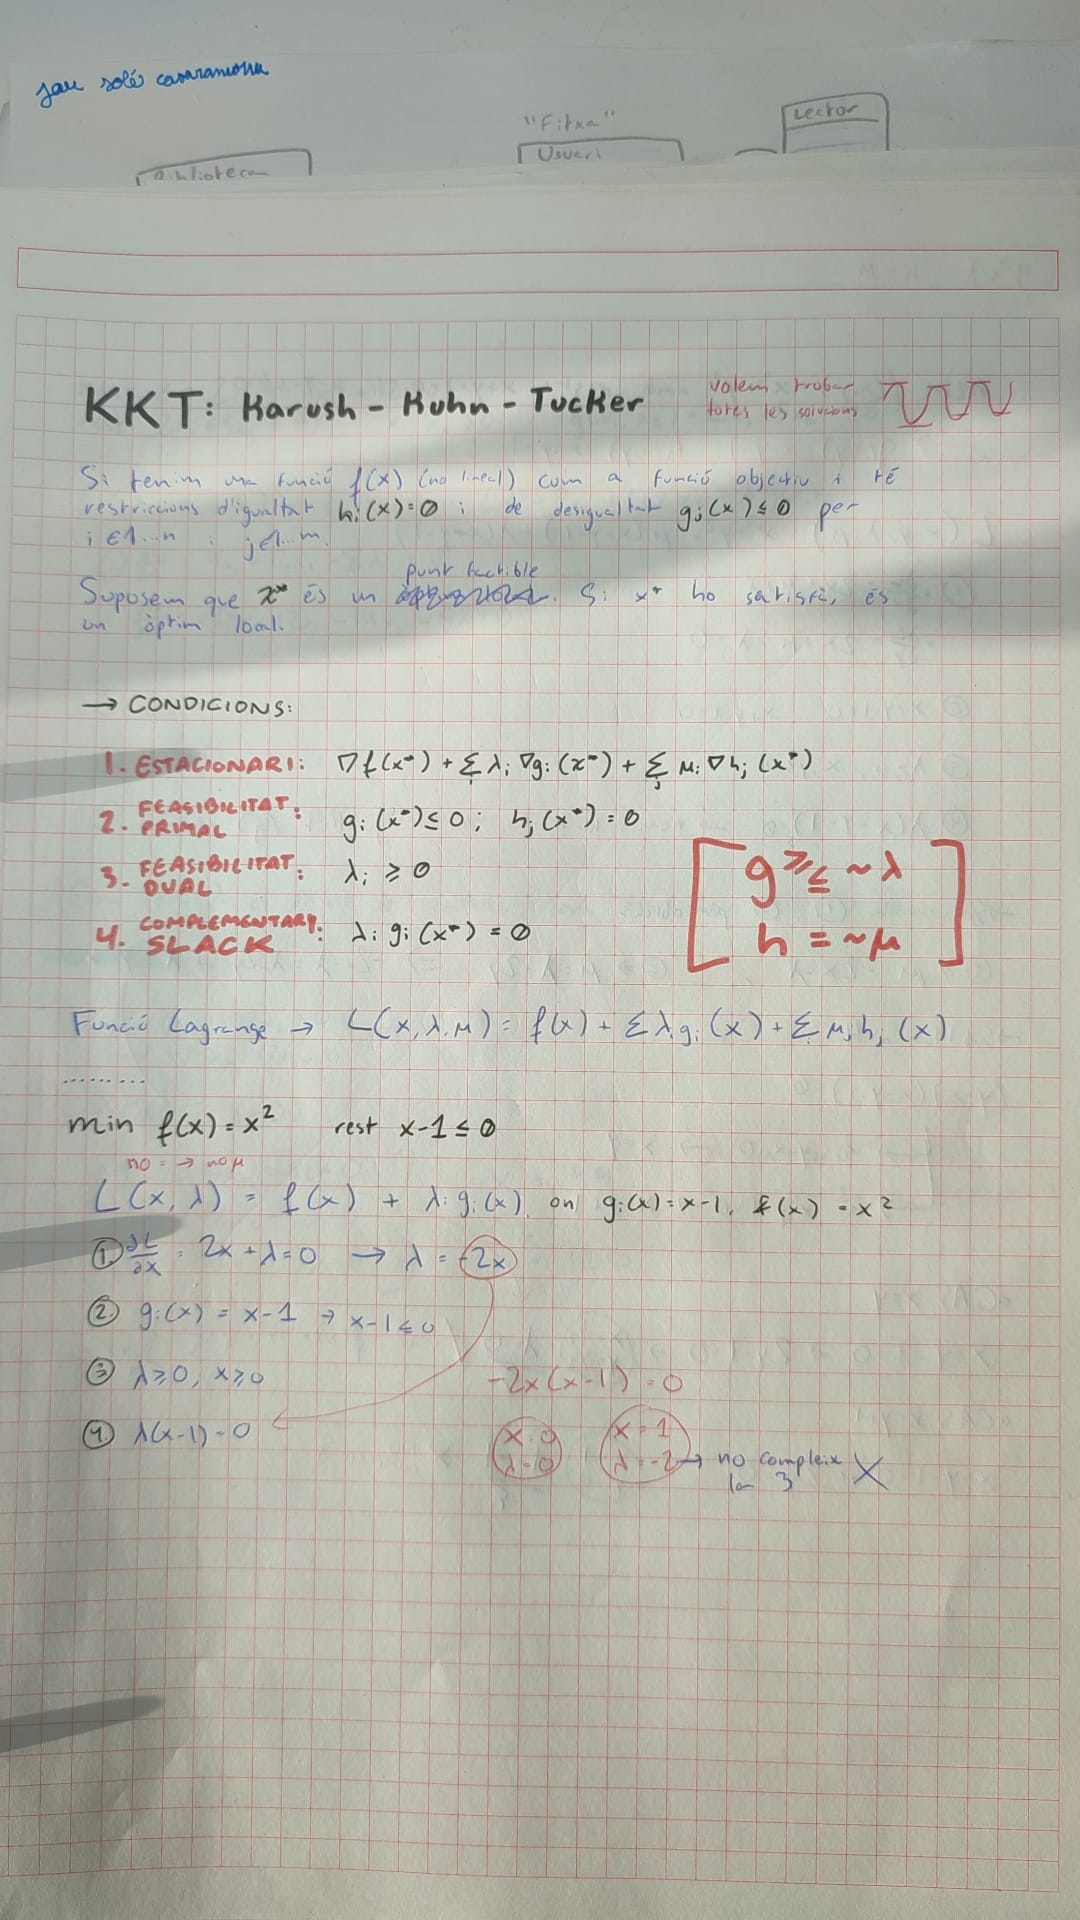 jau solé
"Fitxa"
Lector
Usuari
Biblioteca
KKT: Karush - Kuhn - Tucker
volem trobar
totes les solucions
Si tenim una funció f(x) (no lineal) com a funció objectiu i té
restriccions d'igualtat hᵢ(x)=0 i de desigualtat gⱼ(x)≤0 per
i∈1...n i j∈1...m.
punt factible
Suposem que x* és un . Si x* ho satisfà, és
un òptim local.
→ CONDICIONS:
1. ESTACIONARI: ∇f(x*) + Σᵢ λᵢ ∇gᵢ(x*) + Σⱼ μⱼ ∇hⱼ(x*)
2. FEASIBILITAT PRIMAL: gᵢ(x*) ≤ 0; hⱼ(x*) = 0
3. FEASIBILITAT DUAL: λᵢ ≥ 0
4. COMPLEMENTARY SLACK: λᵢ gᵢ(x*) = 0
g ≥≤ ~ λ
h = ~ μ
Funció Lagrange → L(x, λ, μ) = f(x) + Σ λᵢ gᵢ(x) + Σ μⱼ hⱼ(x)
.........
min f(x) = x² rest x-1 ≤ 0
no = → no μ
L(x, λ) = f(x) + λᵢ gᵢ(x) on gᵢ(x) = x-1, f(x) = x²
① ∂L/∂x = 2x + λ = 0 → λ = -2x
② gᵢ(x) = x-1 → x-1 ≤ 0
③ λ≥0, x≥0
-2x(x-1) = 0
④ λ(x-1) = 0
x=0 x=1
λ=0 λ=-2 → no compleix
la 3 X